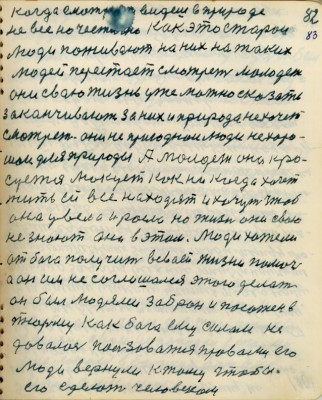 когда смотриш видеш в природе 82
не все но честично как это старои 83
люди поживают на них на таких
людей перестает смотреть молодеж
они сваю жизнь уже можно сказать
заканчивают за них и природа не хочет
смотреть. они не пригодной люди не хоро-
шои для природы А молодеж она кра-
суется ликует как ни когда хочет
жить ей все находят и хочут чтоб
она цвела и росла но жизни они свою
не знают они в этом. Люди хотели
от бога получит в своей жизни помоч
а он им не соглошался этого делат
он был людями забран и посажен в
тюрму как бога ему силам не
давалос пользоватся правами его
люди вернули к тому чтобы
его сделат человеком